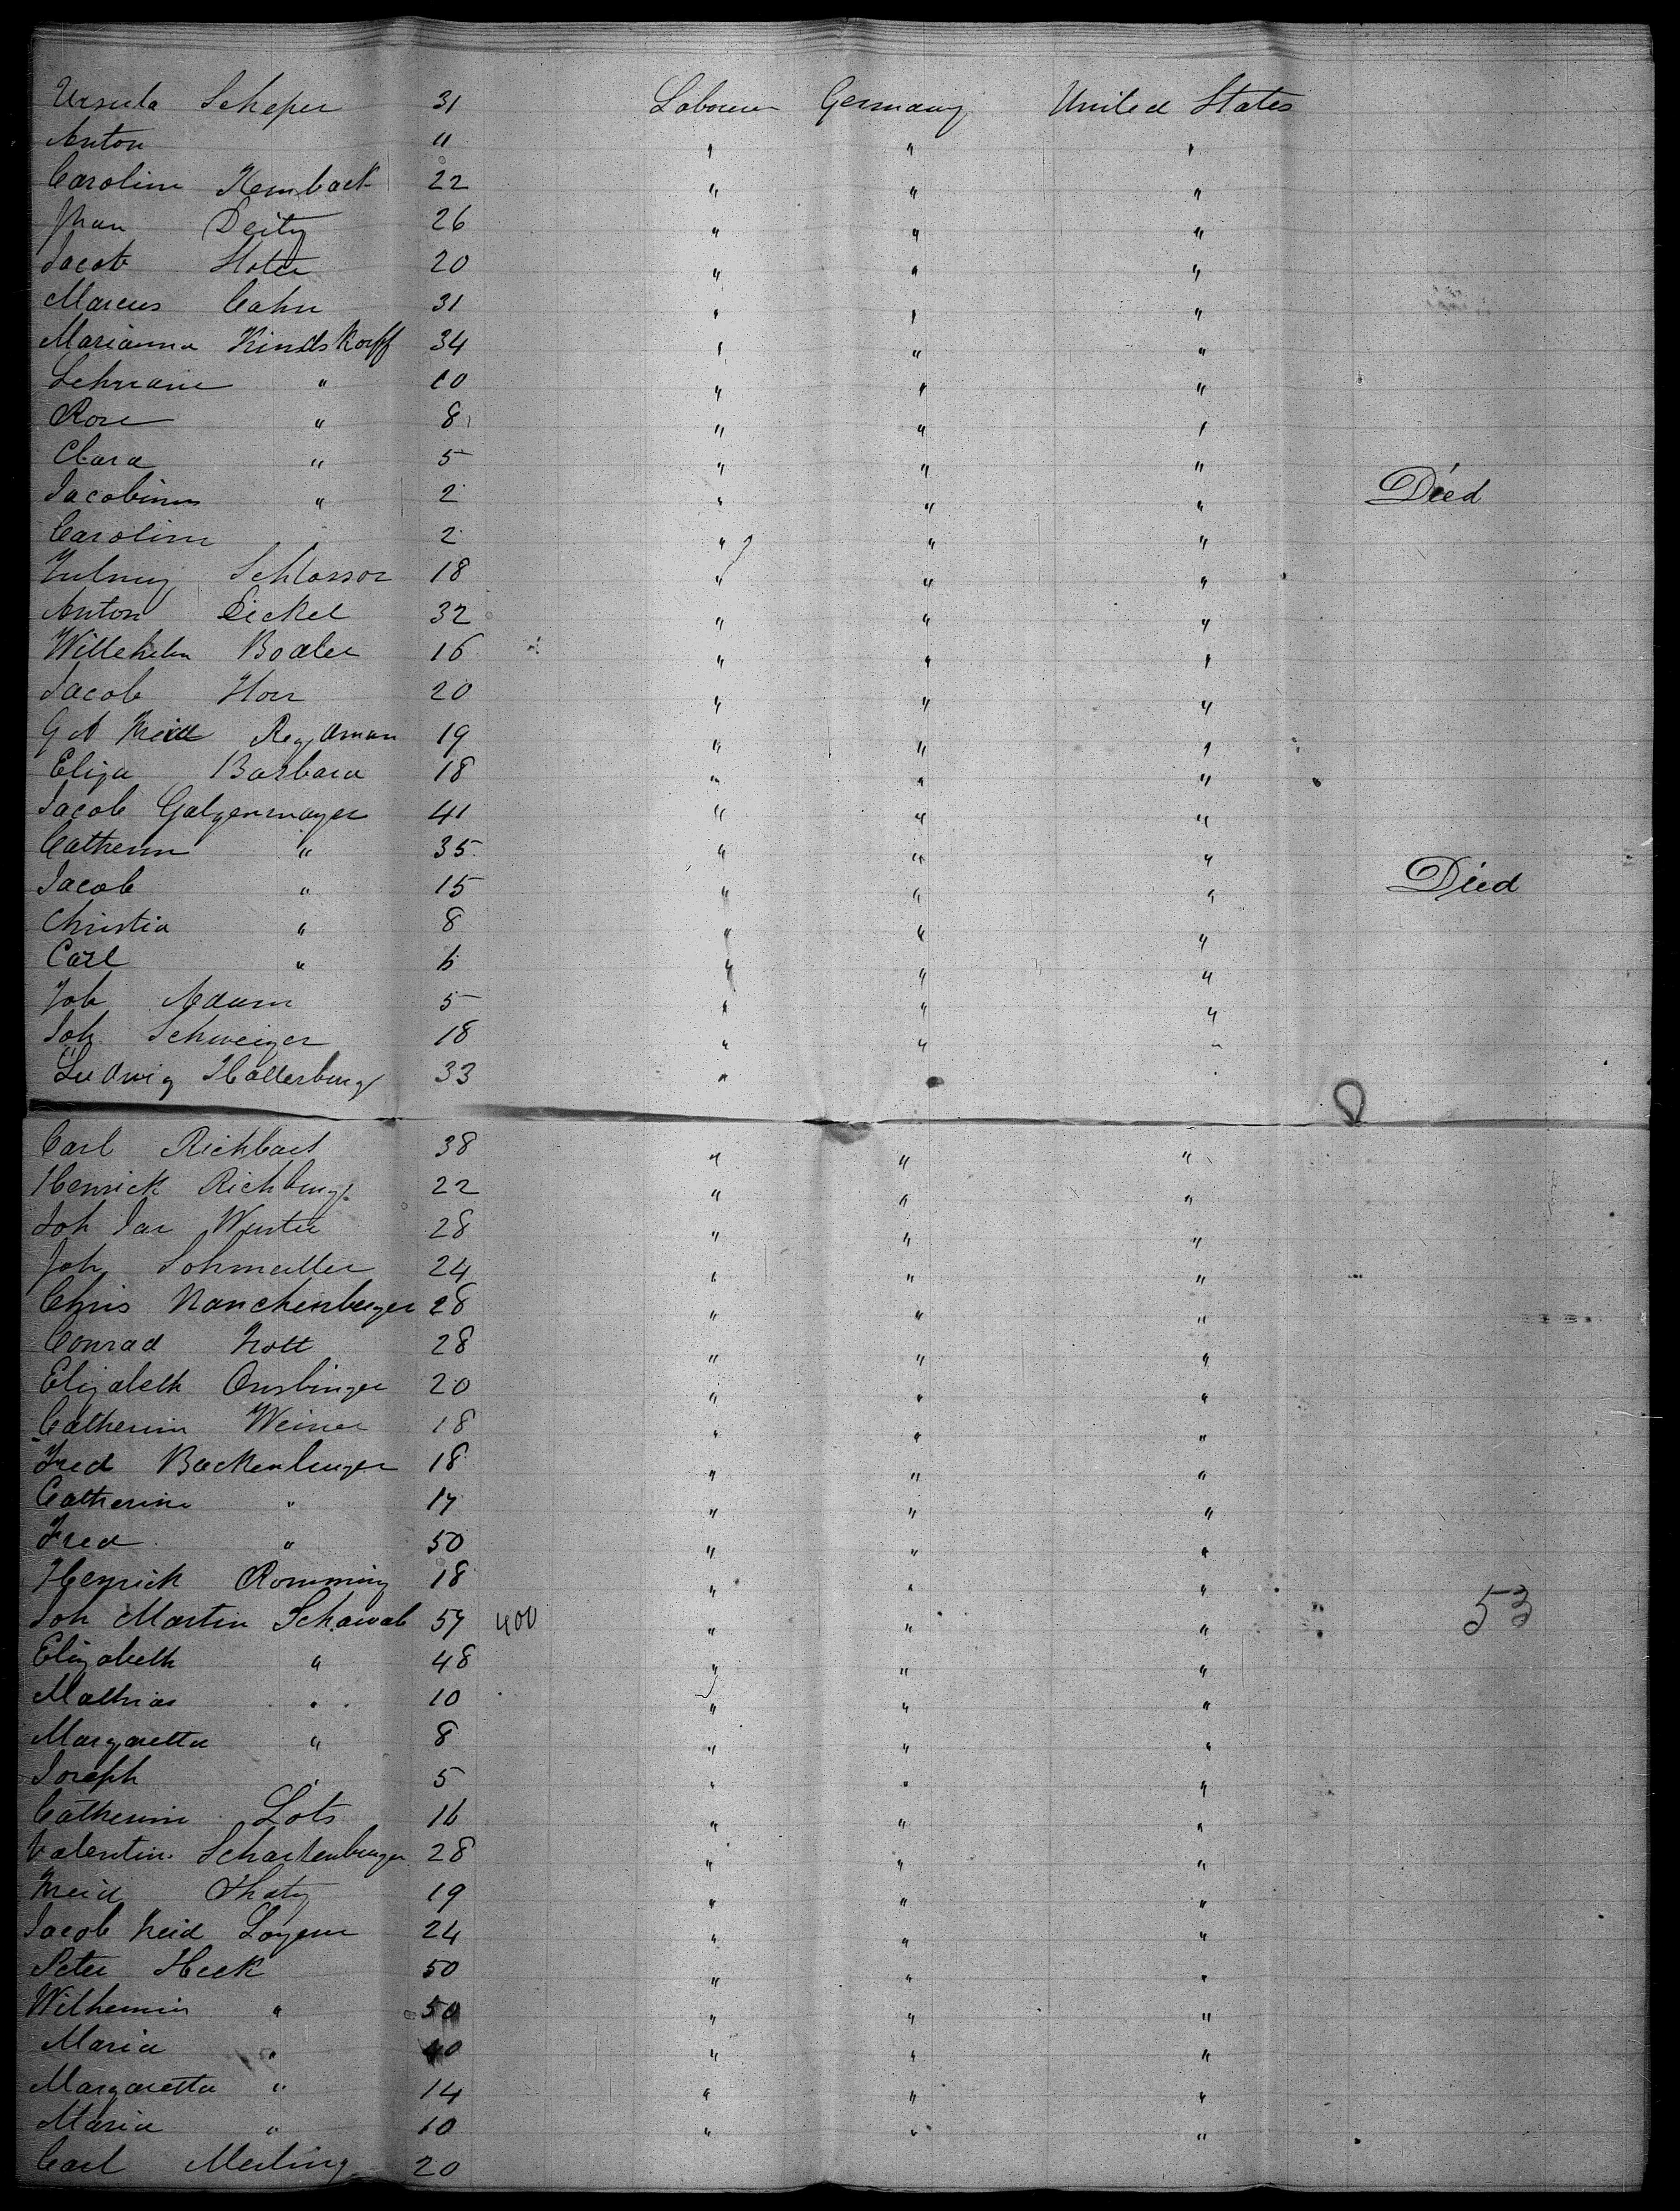 Ursula Scheper 31 Labourer Germany United States
Anton " " " "
Caroline Hemback 22 " " "
Jhan Deitz 26 " " "
Jacob Hoter 20 " " "
Marcus Cahn 31 " " "
Marianna Kindskorff 34 " " "
" 10 " " "
Rose " 8 " " "
Clara " 5 " " "
Jacobinus " 2 " " " Died
Caroline 2 " " "
Schlossor 18 " " "
Anton Eickel 32 " " "
Willehelm Boaler 16 " " "
Jacob Horr 20 " " "
G A 19 " " "
Eliza Barbara 18 " " "
Jacob Galgenmayer 41 " " "
Catherin " 35 " " "
Jacob " 15 " " " Died
Christia " 8 " " "
Carl " 6 " " "
Joh Adam 5 " " "
Joh Schweizer 18 " " "
Ludwig Hallerburg 33 "
Carl Richbart 38 " " "
Henrick Richburg 22 " " "
Joh Jac Winter 28 " " "
Joh Schmaller 24 " " "
Chris Nanchenberger 28 " " "
Conrad Nott 28 " " "
Elizabeth Onsbinger 20 " " "
Catherin Weiner 18 " " "
Fred Backenburger 18 " " "
Catherine " 17 " " "
Fred " 50 " " "
Henrich Romming 18 " " "
Joh Martin Schawab 57 400 " " " 53
Elizabeth " 48 " " "
Mathias " 10 " " "
Margaretta " 8 " " "
Joseph " 5 " " "
Catherine Lots 16 " " "
Valentin Schartenburger 28 " " "
Shatz 19 " " "
Jacob 24 " " "
Peter Heck 50 " " "
Wilhemin " 50 " " "
Maria " 40 " " "
Margaretta " 14 " " "
Maria " 10 " " "
Carl Merling 20